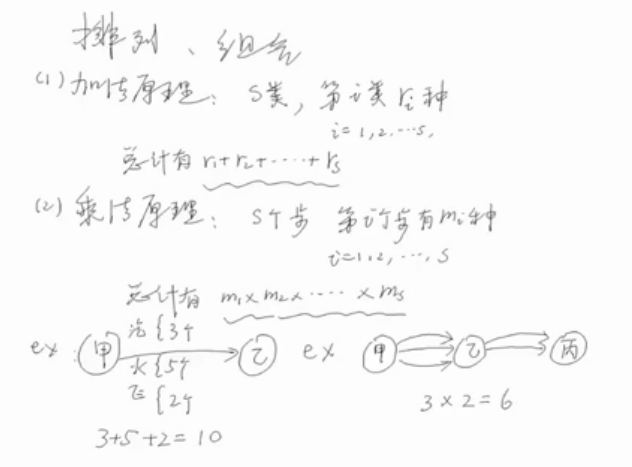 排列、组合
(1) 加法原理: S类, 第i类 ri种
i=1,2,...s,
总计有 r1+r2+······+rs
(2) 乘法原理: S个步 第i个步有mi种
i=1,2,...,s
总计有 m1×m2×·····×ms
ex: 甲 汽{3个 乙
火{5个
飞{2个
3+5+2=10
ex 甲 乙 丙
3×2=6